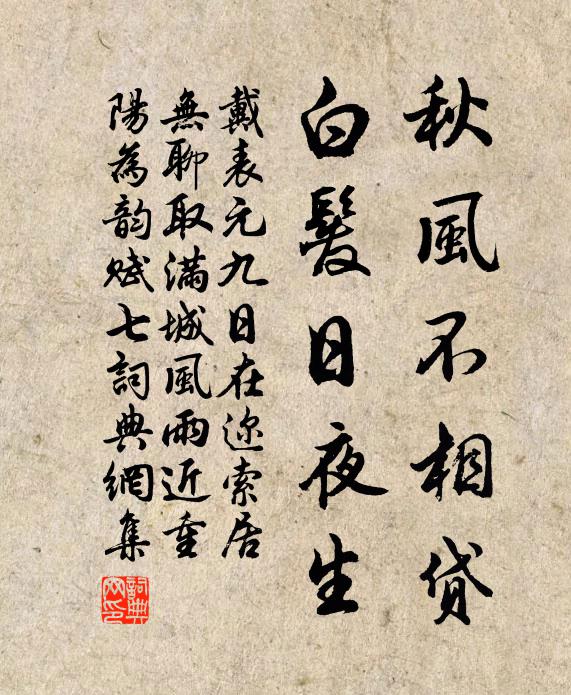 秋風不相貸
白髮日夜生
戴表元九日在迩索居
無聊取滿城風雨近重
陽為韵賦七詞典網集
詞典
网印